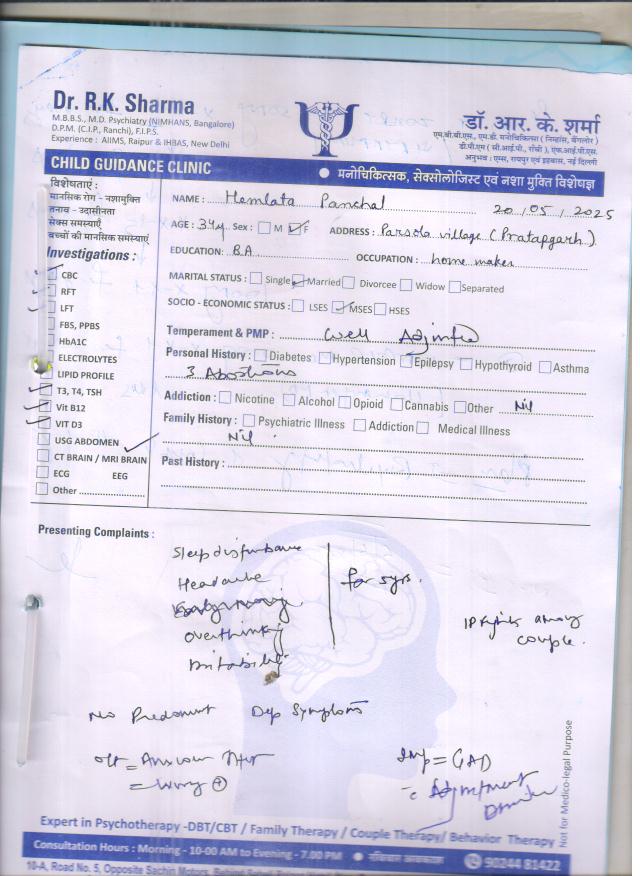 Dr. R.K. Sharma
M.B.B.S., M.D. Psychiatry (NIMHANS, Bangalore)
D.P.M. (C.I.P., Ranchi), F.I.P.S.
Experience : AIIMS, Raipur & IHBAS, New Delhi
डॉ. आर. के. शर्मा
एम.बी.बी.एस., एम.डी. मनोचिकित्सा ( निम्हांस, बैंगलोर )
डी.पी.एम ( सी.आई.पी., राँची ), एफ.आई.पी.एस.
अनुभव : एम्स, रायपुर एवं इहबास, नई दिल्ली
CHILD GUIDANCE CLINIC
● मनोचिकित्सक, सेक्सोलोजिस्ट एवं नशा मुक्ति विशेषज्ञ
विशेषताएं :
मानसिक रोग - नशामुक्ति
तनाव - उदासीनता
सेक्स समस्याएँ
बच्चों की मानसिक समस्याएँ
Investigations :
CBC
RFT
LFT
FBS, PPBS
HbA1C
ELECTROLYTES
LIPID PROFILE
T3, T4, TSH
Vit B12
VIT D3
USG ABDOMEN
CT BRAIN / MRI BRAIN
ECG EEG
Other
NAME : Hemlata Panchal 20/05/2025
AGE : 34y Sex : M F ADDRESS : Parsola village (Pratapgarh)
EDUCATION: B.A OCCUPATION : home maker
MARITAL STATUS : Single Married Divorcee Widow Separated
SOCIO - ECONOMIC STATUS : LSES MSES HSES
Temperament & PMP : Well
Personal History : Diabetes Hypertension Epilepsy Hypothyroid Asthma
3 Abortions
Addiction : Nicotine Alcohol Opioid Cannabis Other Nil
Family History : Psychiatric Illness Addiction Medical Illness
Nil
Past History :
Presenting Complaints :
Sleep disturbance
Headache
overthinking
Irritability
for 5yrs.
IP fights among
couple.
No Predominant Dep Symptoms
= Worry +
Imp = GAD
Adjustment
Disorder
Not for Medico-legal Purpose
Expert in Psychotherapy -DBT/CBT / Family Therapy / Couple Therapy/ Behavior Therapy
Consultation Hours : Morning - 10-00 AM to Evening - 7.00 PM ● रविवार अवकाश 90244 81422
10-A, Road No. 5, Opposite Sachin Motors,